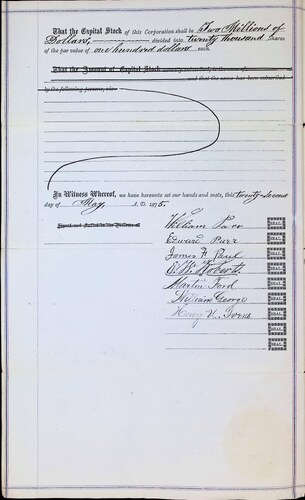 That the Capital Stock of this Corporation shall be Two Millions of
Dollars, divided into twenty thousand shares
of the par value of one hundred dollars each.
That the Amount of Capital Stock
and that the same has been subscribed
by the following persons, viz:
In Witness Whereof, we have hereunto set our hands and seals, this twenty-second
day of May A. D. 1875.
Signed and Sealed in the Presence of
William Parr SEAL
Edward Parr SEAL
James F. Paul SEAL
SEAL
Martin Ford SEAL
William George SEAL
Henry N. SEAL
SEAL
SEAL
SEAL